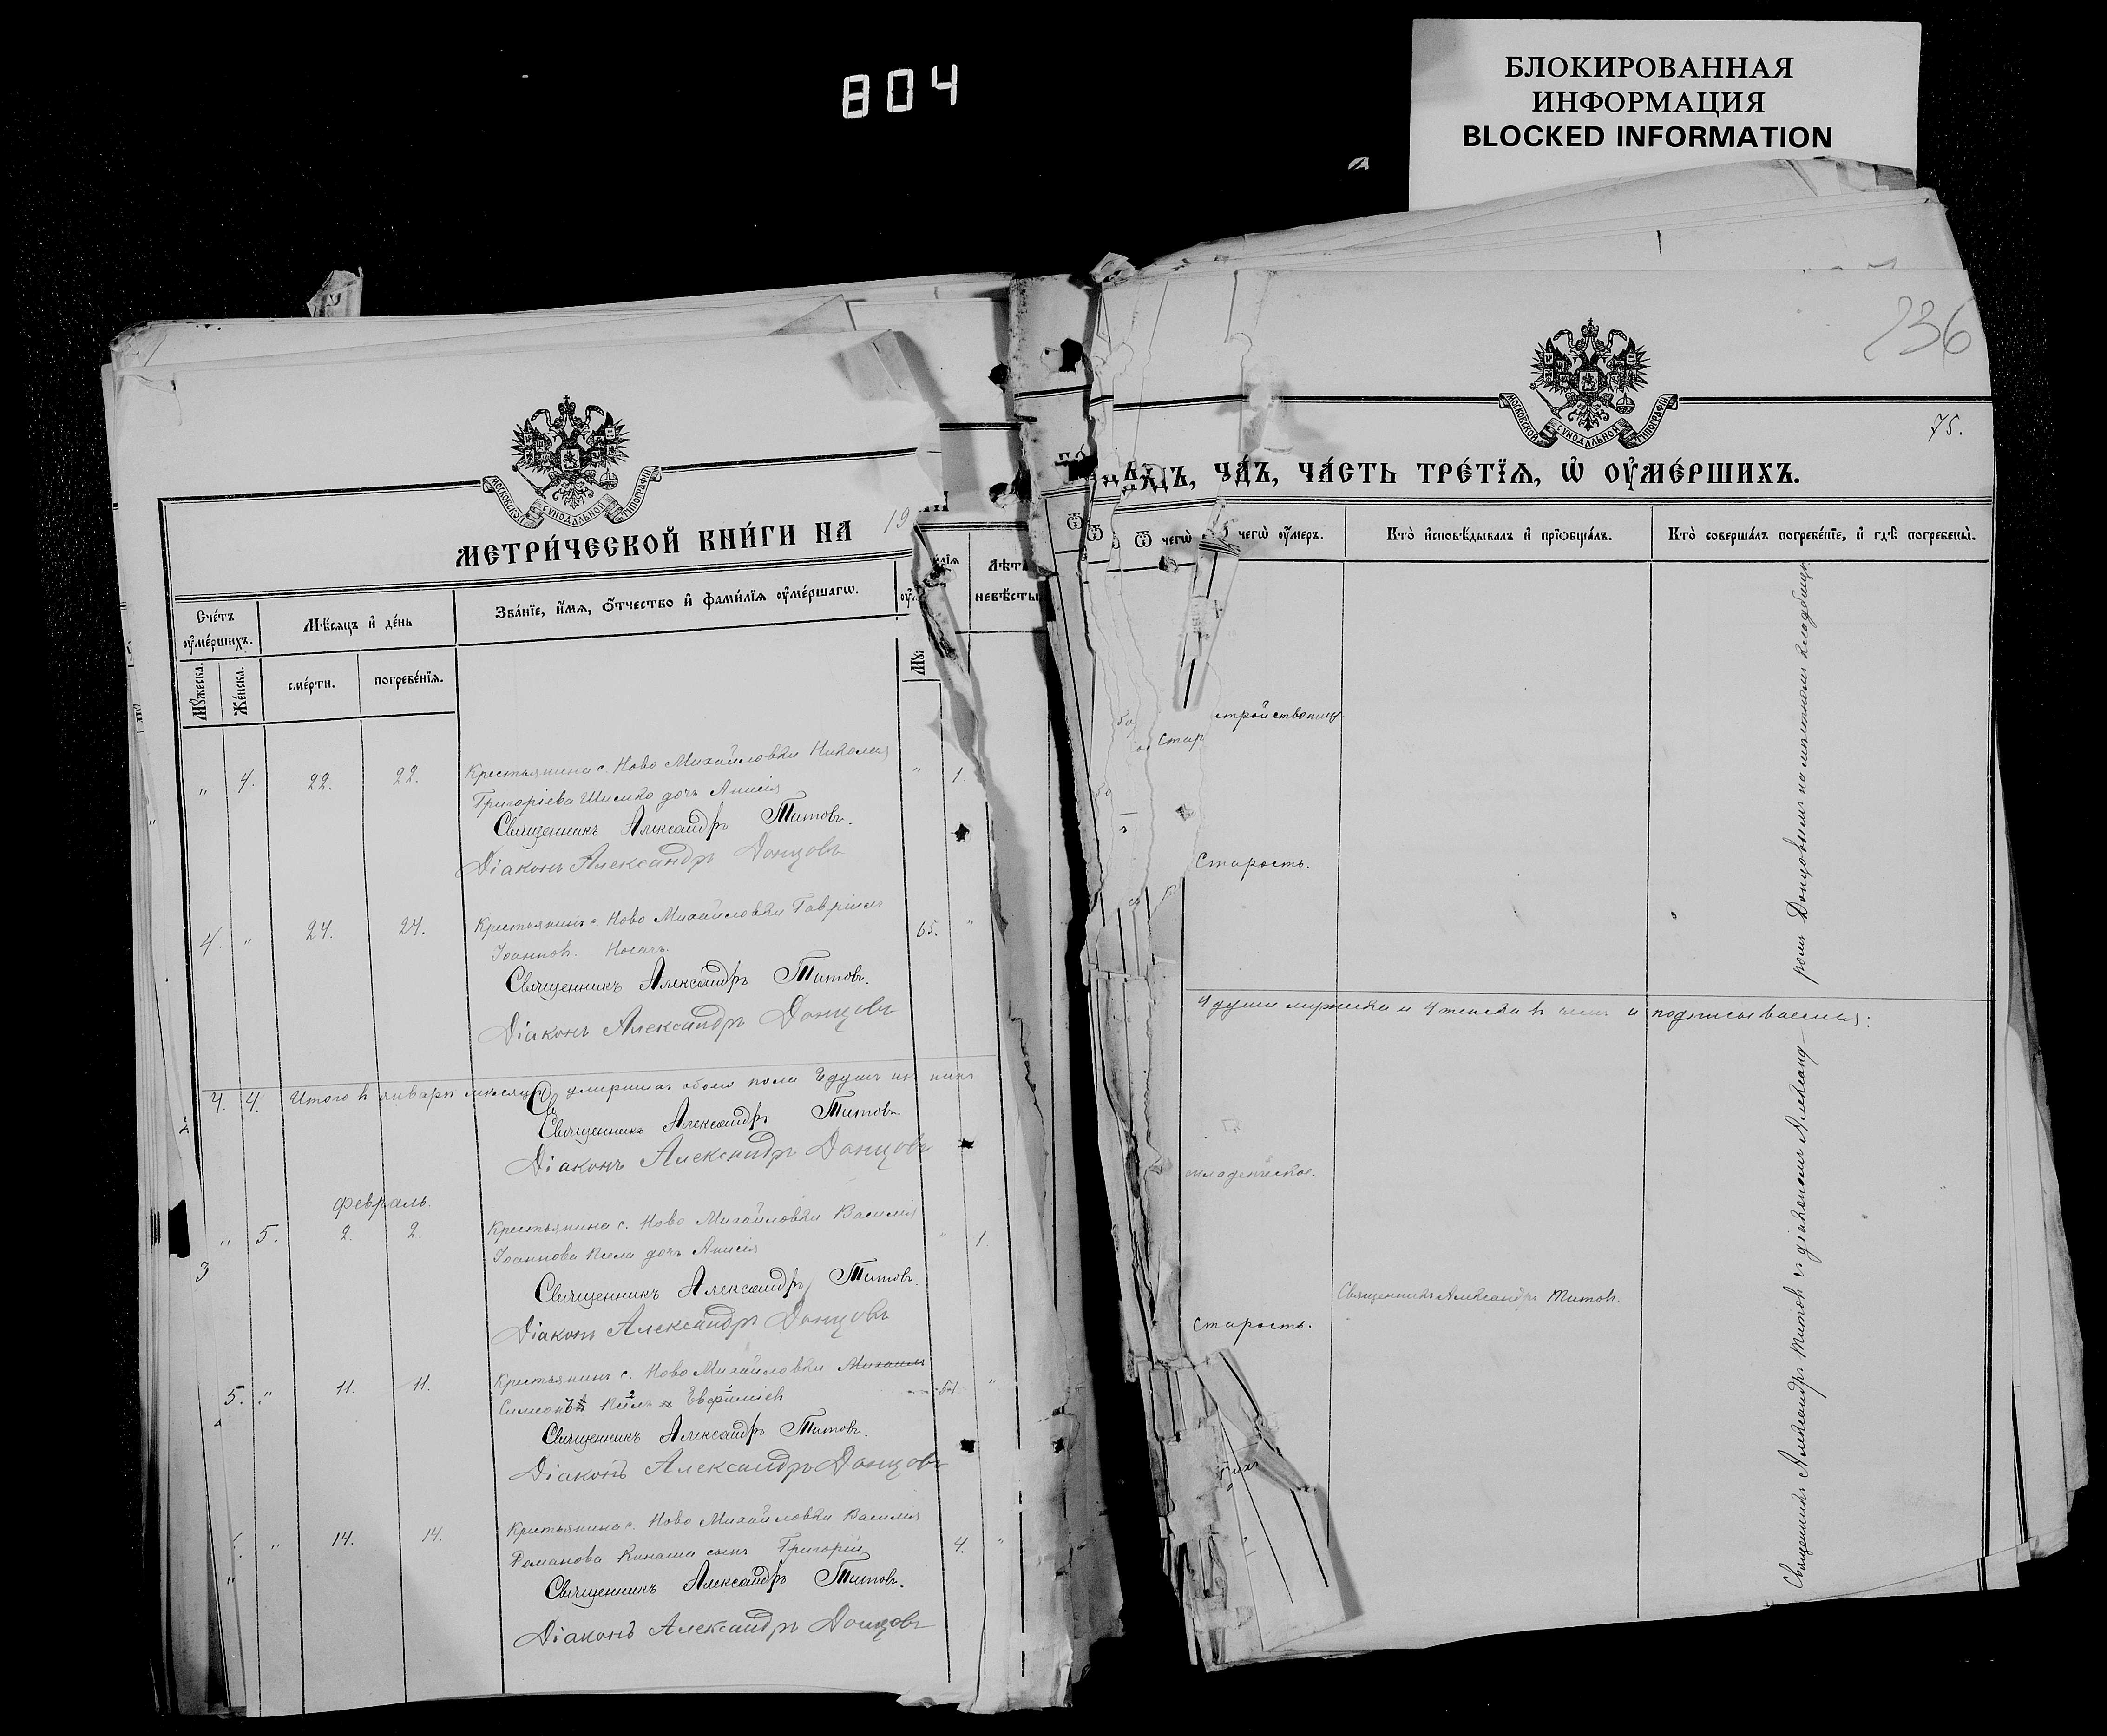 804
БЛОКИРОВАННАЯ
ИНФОРМАЦИЯ
BLOCKED INFORMATION
МОСКОВСКОЙ СѴНОДАЛЬНОЙ ТИПОГРАФІИ
МЕТРИ́ЧЕСКОЙ КНИ́ГИ НА 19
Сче́тъ ᲂу҆ме́ршихъ.
Мѣ́сяцъ и҆ де́нь
Зва́нїе, и҆́мѧ, ѻ҆́тчество и҆ фами́лїѧ ᲂу҆ме́ршагѡ.
Лѣт
невѣсты
Мꙋ́жеска.
Же́нска.
сме́рти.
погребе́нїѧ.
" 4. 22. 22. Крестьянина с. Ново Михайловки Николая " 1.
Григоріева Шимко дочь Анисія
Священникъ Александръ Титовъ.
Діаконъ Александръ Донцовъ
4. " 24. 24. Крестьянинъ с. Ново Михайловки Гавріилъ 65. "
Іоанновъ Носачъ.
Священникъ Александръ Титовъ.
Діаконъ Александръ Донцовъ
4. 4. Итого въ январѣ мѣсяцѣ умершихъ обоего пола 8 душъ изъ нихъ
Священникъ Александръ Титовъ
Діаконъ Александръ Донцовъ
Февраль.
" 5. 2. 2. Крестьянина с. Ново Михайловки Василія " 1
Іоаннова дочь Анисія
Священникъ Александръ Титовъ.
Діаконъ Александръ Донцовъ
3
5. " 11. 11. Крестьянинъ с. Ново Михайловки Михаилъ "
Евфиміевъ
Священникъ Александръ Титовъ.
Діаконъ Александръ Донцовъ
" 14. 14. Крестьянина с. Ново Михайловки Василія 4. "
Романова сынъ Григорій
Священникъ Александръ Титовъ.
Діаконъ Александръ Донцовъ
136
75.
МОСКОВСКОЙ СѴНОДАЛЬНОЙ ТИПОГРАФІИ
ЧА́СТЬ ТРЕ́ТЇѦ, Ѡ҆ ОУ҆МЕ́РШИХЪ.
Ѿ чегѡ̀ ᲂу҆́меръ.
Кто̀ и҆сповѣ́дывалъ и҆ прїѡбща́лъ.
Кто̀ соверша́лъ погребе́нїе, и҆ гдѣ̀ погребены̀.
Стар
Старость.
4 души мужска и 4 женска въ чемъ и подписываемся:
младенческое.
Священникъ Александръ Титовъ.
Старость.
Священникъ Александръ Титовъ съ діакономъ Александ-
ромъ Донцовымъ на мѣстномъ кладбищѣ